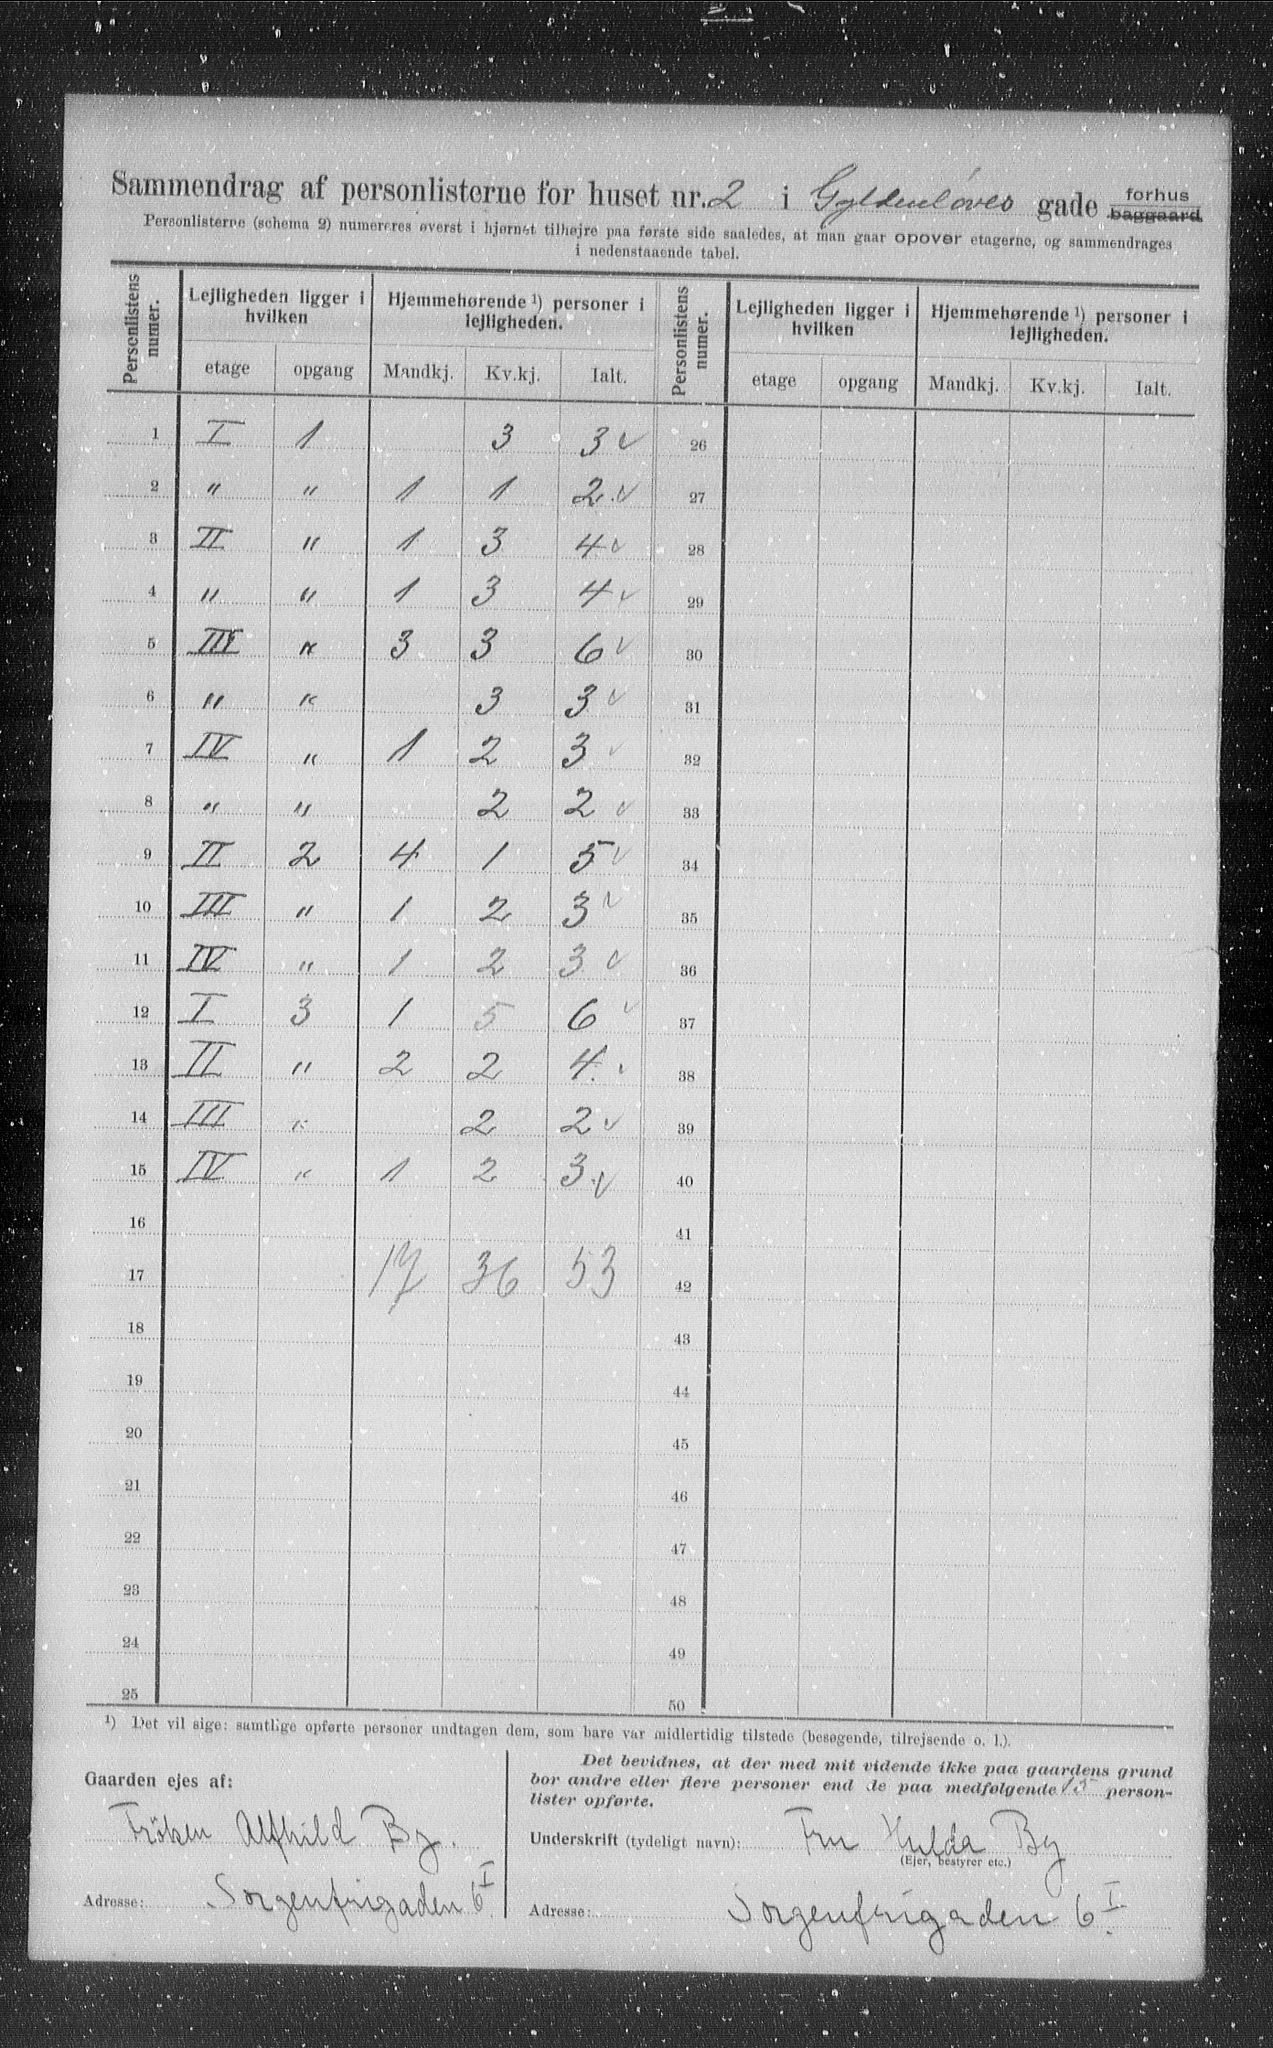 Sammendrag af personlisterne for huset nr. 2 i Gyldenløves gade forhus ~~baggaard~~
Personlisterne (schema 2) numereres øverst i hjørnet tilhøjre paa første side saaledes, at man gaar opover etagerne, og sammendrages
i nedenstaaende tabel.
Personlistens numer. | Lejligheden ligger i hvilken | Hjemmehørende ¹) personer i lejligheden. | Personlistens numer. | Lejligheden ligger i hvilken | Hjemmehørende ¹) personer i lejligheden.
etage | opgang | Mandkj. | Kv.kj. | Ialt. | etage | opgang | Mandkj. | Kv.kj. | Ialt.
1 | I | 1 | | 3 | 3 ✓ | 26
2 | " | " | 1 | 1 | 2 ✓ | 27
3 | II | " | 1 | 3 | 4 ✓ | 28
4 | " | " | 1 | 3 | 4 ✓ | 29
5 | III | " | 3 | 3 | 6 ✓ | 30
6 | " | " | | 3 | 3 ✓ | 31
7 | IV | " | 1 | 2 | 3 ✓ | 32
8 | " | " | | 2 | 2 ✓ | 33
9 | II | 2 | 4 | 1 | 5 ✓ | 34
10 | III | " | 1 | 2 | 3 ✓ | 35
11 | IV | " | 1 | 2 | 3 ✓ | 36
12 | I | 3 | 1 | 5 | 6 ✓ | 37
13 | II | " | 2 | 2 | 4. ✓ | 38
14 | III | " | | 2 | 2 ✓ | 39
15 | IV | " | 1 | 2 | 3 ✓ | 40
16 | 41
17 | | | 17 | 36 | 53 | 42
18 | 43
19 | 44
20 | 45
21 | 46
22 | 47
23 | 48
24 | 49
25 | 50
¹) Det vil sige: samtlige opførte personer undtagen dem, som bare var midlertidig tilstede (besøgende, tilrejsende o. l.).
Gaarden ejes af:
Fröken Alfhild By.
Adresse: Sorgenfrigaden 6 I
Det bevidnes, at der med mit vidende ikke paa gaardens grund
bor andre eller flere personer end de paa medfølgende 15 person-
lister opførte.
Underskrift (tydeligt navn): Fru Hulda By
(Ejer, bestyrer etc.)
Adresse: Sorgenfrigaden 6 I